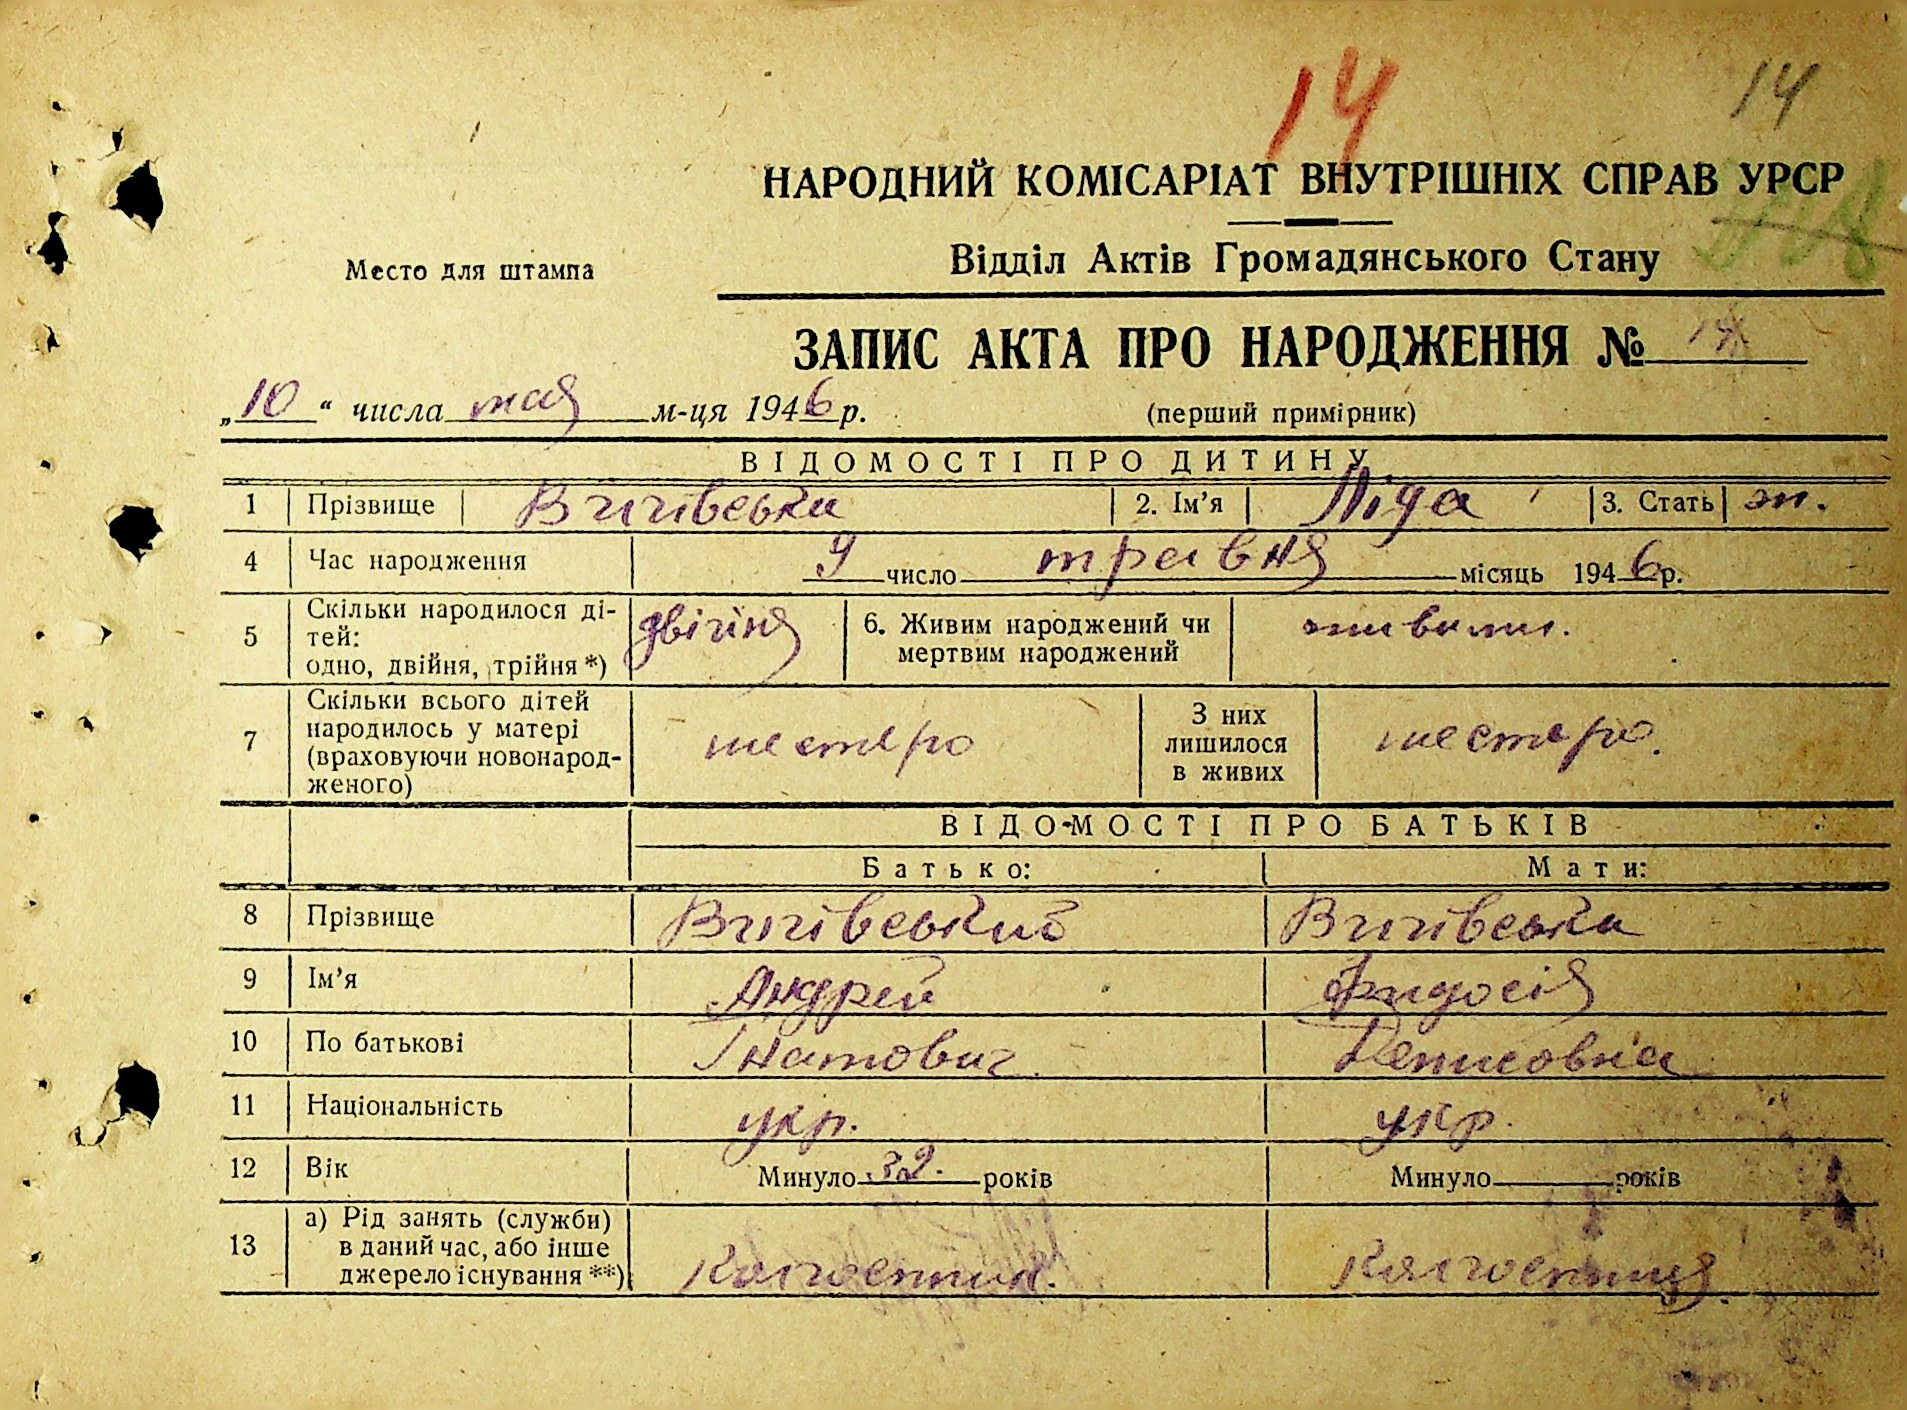 14 14
НАРОДНИЙ КОМІСАРІАТ ВНУТРІШНІХ СПРАВ УРСР
Место для штампа
Відділ Актів Громадянського Стану
ЗАПИС АКТА ПРО НАРОДЖЕННЯ № 14
„10“ числа мая м-ця 1946 р.
(перший примірник)
ВІДОМОСТІ ПРО ДИТИНУ
1 Прізвище 2. Ім’я Ліда 3. Стать ж.
4 Час народження 9 число травня місяць 1946 р.
5 Скільки народилося ді-
тей:
одно, двійня, трійня *) двійня 6. Живим народжений чи
мертвим народжений живими.
7 Скільки всього дітей
народилось у матері
(враховуючи новонарод-
женого) шестеро З них
лишилося
в живих шестеро.
ВІДОМОСТІ ПРО БАТЬКІВ
Батько: Мати:
8 Прізвище
9 Ім’я Андрей Федосія
10 По батькові Ігнатович Денисовна
11 Національність укр. укр.
12 Вік Минуло 32. років Минуло років
13 а) Рід занять (служби)
в даний час, або інше
джерело існування **) Колгоспник. Колгоспниця.